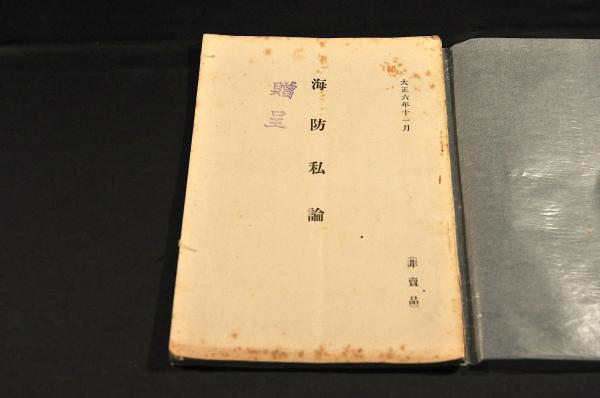 秘
大正六年十一月
(非賣品)
海防私論
贈呈